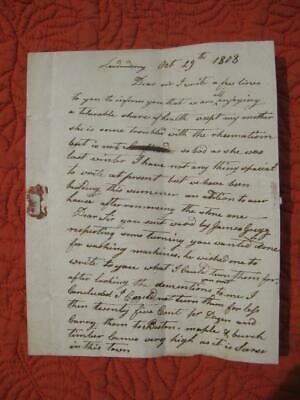 Londonderry Oct 29th 1808
Dear sir I write a few lines
to you to inform you that we are all enjoying
a tolerable share of health exept my mother
she is some troubled with the rheumatism
but is not so bad as she was
last winter I have not any thing spesial
to write at present but we have been
building this summer an adition to our
house after running the stone one
Dear Sir you sent word by James Gregg
respecting some turning you wanted done
for washing machines, he wished me to
write to you what I could turn them for,
after looking the dementions to me I
Concluded I Could not turn them for less
then twenty five Cent pr Dozen and
Carry them to Boston - maple & burch
timber comes very high as it is scarse
in this town